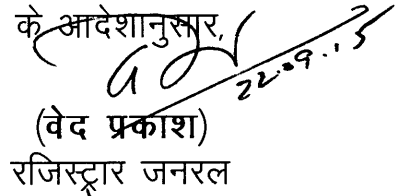 के आदेशानुसार,
22.9.15
(वेद प्रकाश)
रजिस्ट्रार जनरल